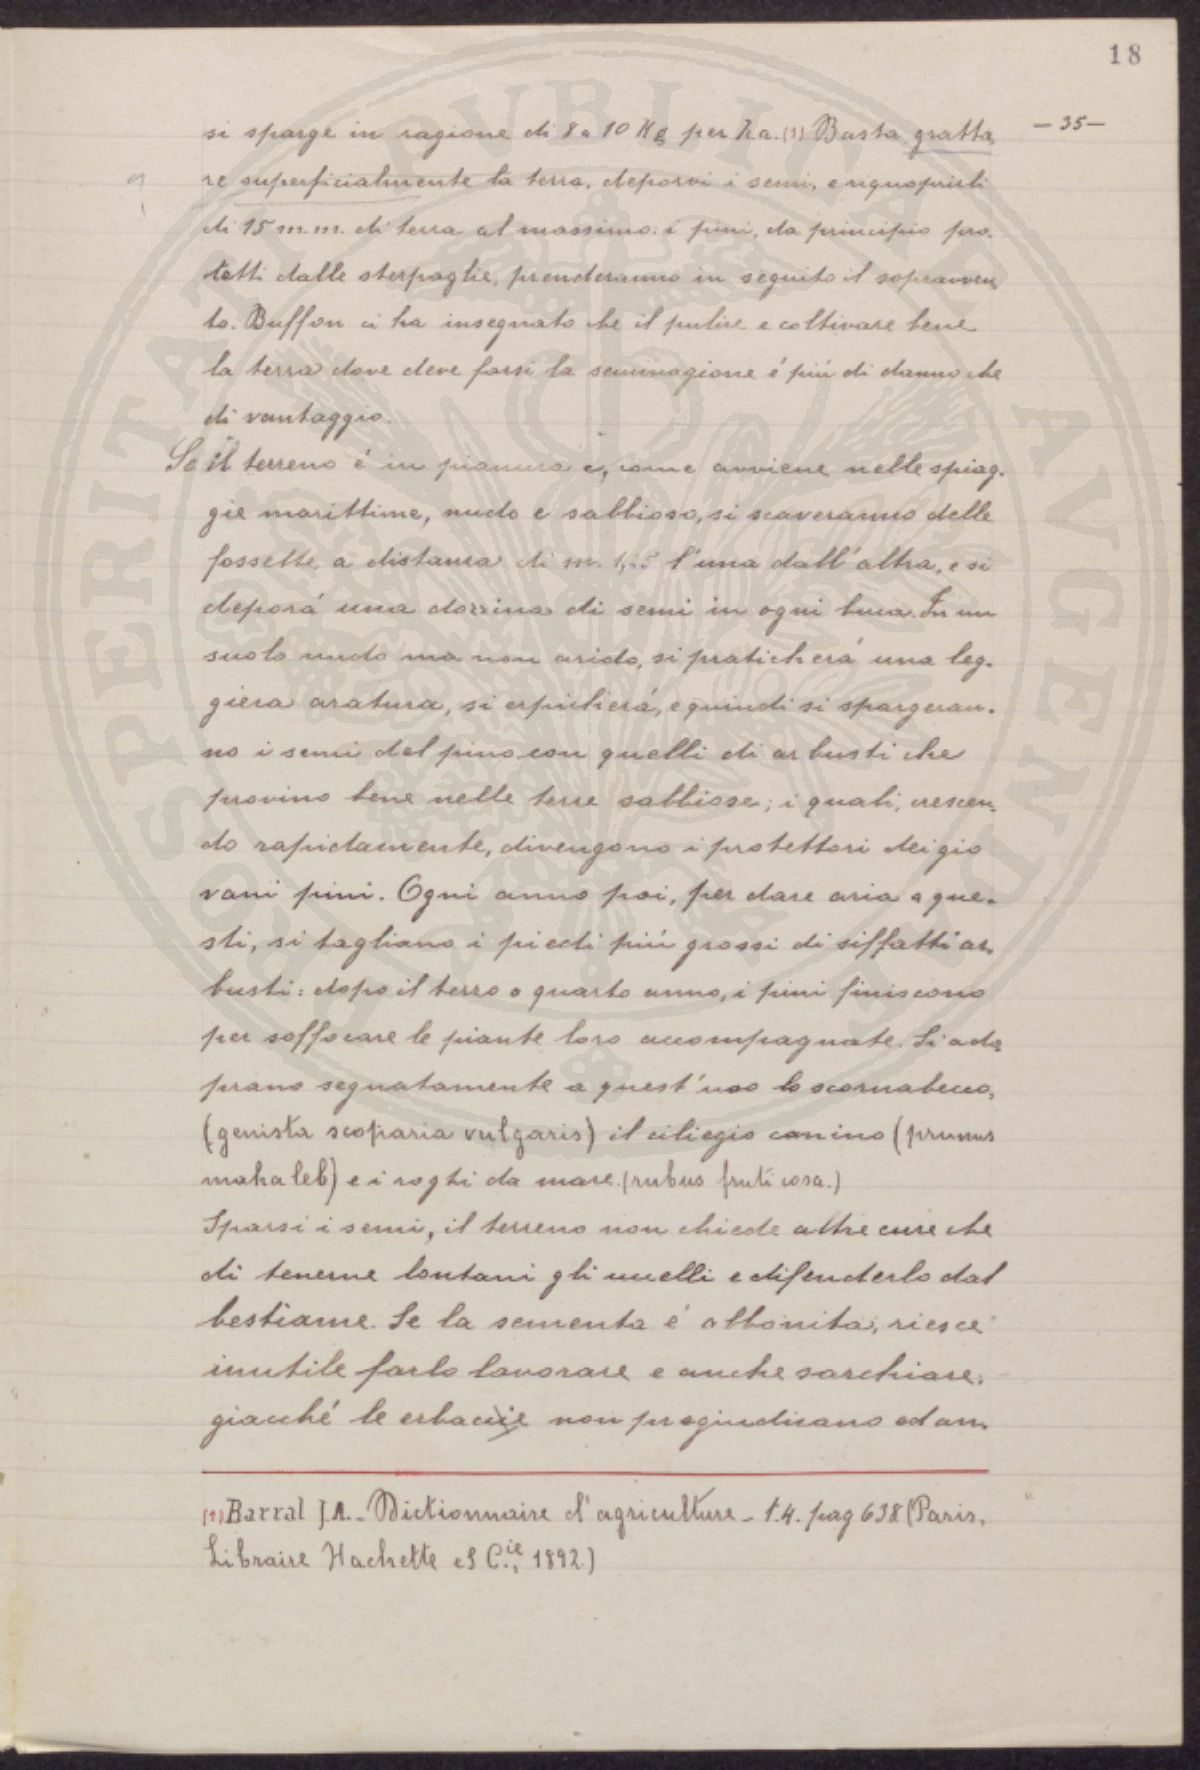 18
— 35 —
si sparge in ragione di 8 a 10 Kg per ha. (1) Basta gratta
re superficialmente la terra, deporvi i semi, e riquoprirli
di 15 m.m. di terra al massimo: i pini, da principio pro.
tetti dalle sterpaglie, prenderanno in seguito il sopravven
to. Buffon ci ha insegnato che il pulire e coltivare bene
la terra dove deve farsi la seminagione é piú di danno che
di vantaggio.
Se il terreno é in pianura e, come avviene nelle spiag.
gie marittime, nudo e sabbioso, si scaveranno delle
fossette a distanza di m. l'una dall'altra, e si
deporá una dozzina di semi in ogni buca. In un
suolo nudo ma non arido, si praticherá una leg.
giera aratura, si erpicherá, e quindi si spargeran.
no i semi del pino con quelli di arbusti che
provino bene nelle terre sabbiose; i quali, crescen.
do rapidamente, divengono i protettori dei gio
vani pini. Ogni anno poi, per dare aria a que.
sti, si tagliano i piedi piú grossi di siffatti ar.
busti: dopo il terzo o quarto anno, i pini finiscono
per soffocare le piante loro accompagnate. Si ado
prano segnatamente a quest'uso lo scornabecco,
(genista scoparia vulgaris) il ciliegio canino (prunus
mahaleb) e i roghi da mare. (rubus fruticosa.)
Sparsi i semi, il terreno non chiede altre cure che
di tenerne lontani gli uccelli e difenderlo dal
bestiame. Se la sementa é attonita, riesce
inutile farlo lavorare e anche sarchiare,
giacché le erbacie non pregiudicano ed an.
(1) Barral J.A. - Dictionnaire d'agriculture - t. 4. pag 638 (Paris,
Libraire Hachette et C.ie, 1892.)
PVBLICA
PROSPERITATI
AVGENDAE